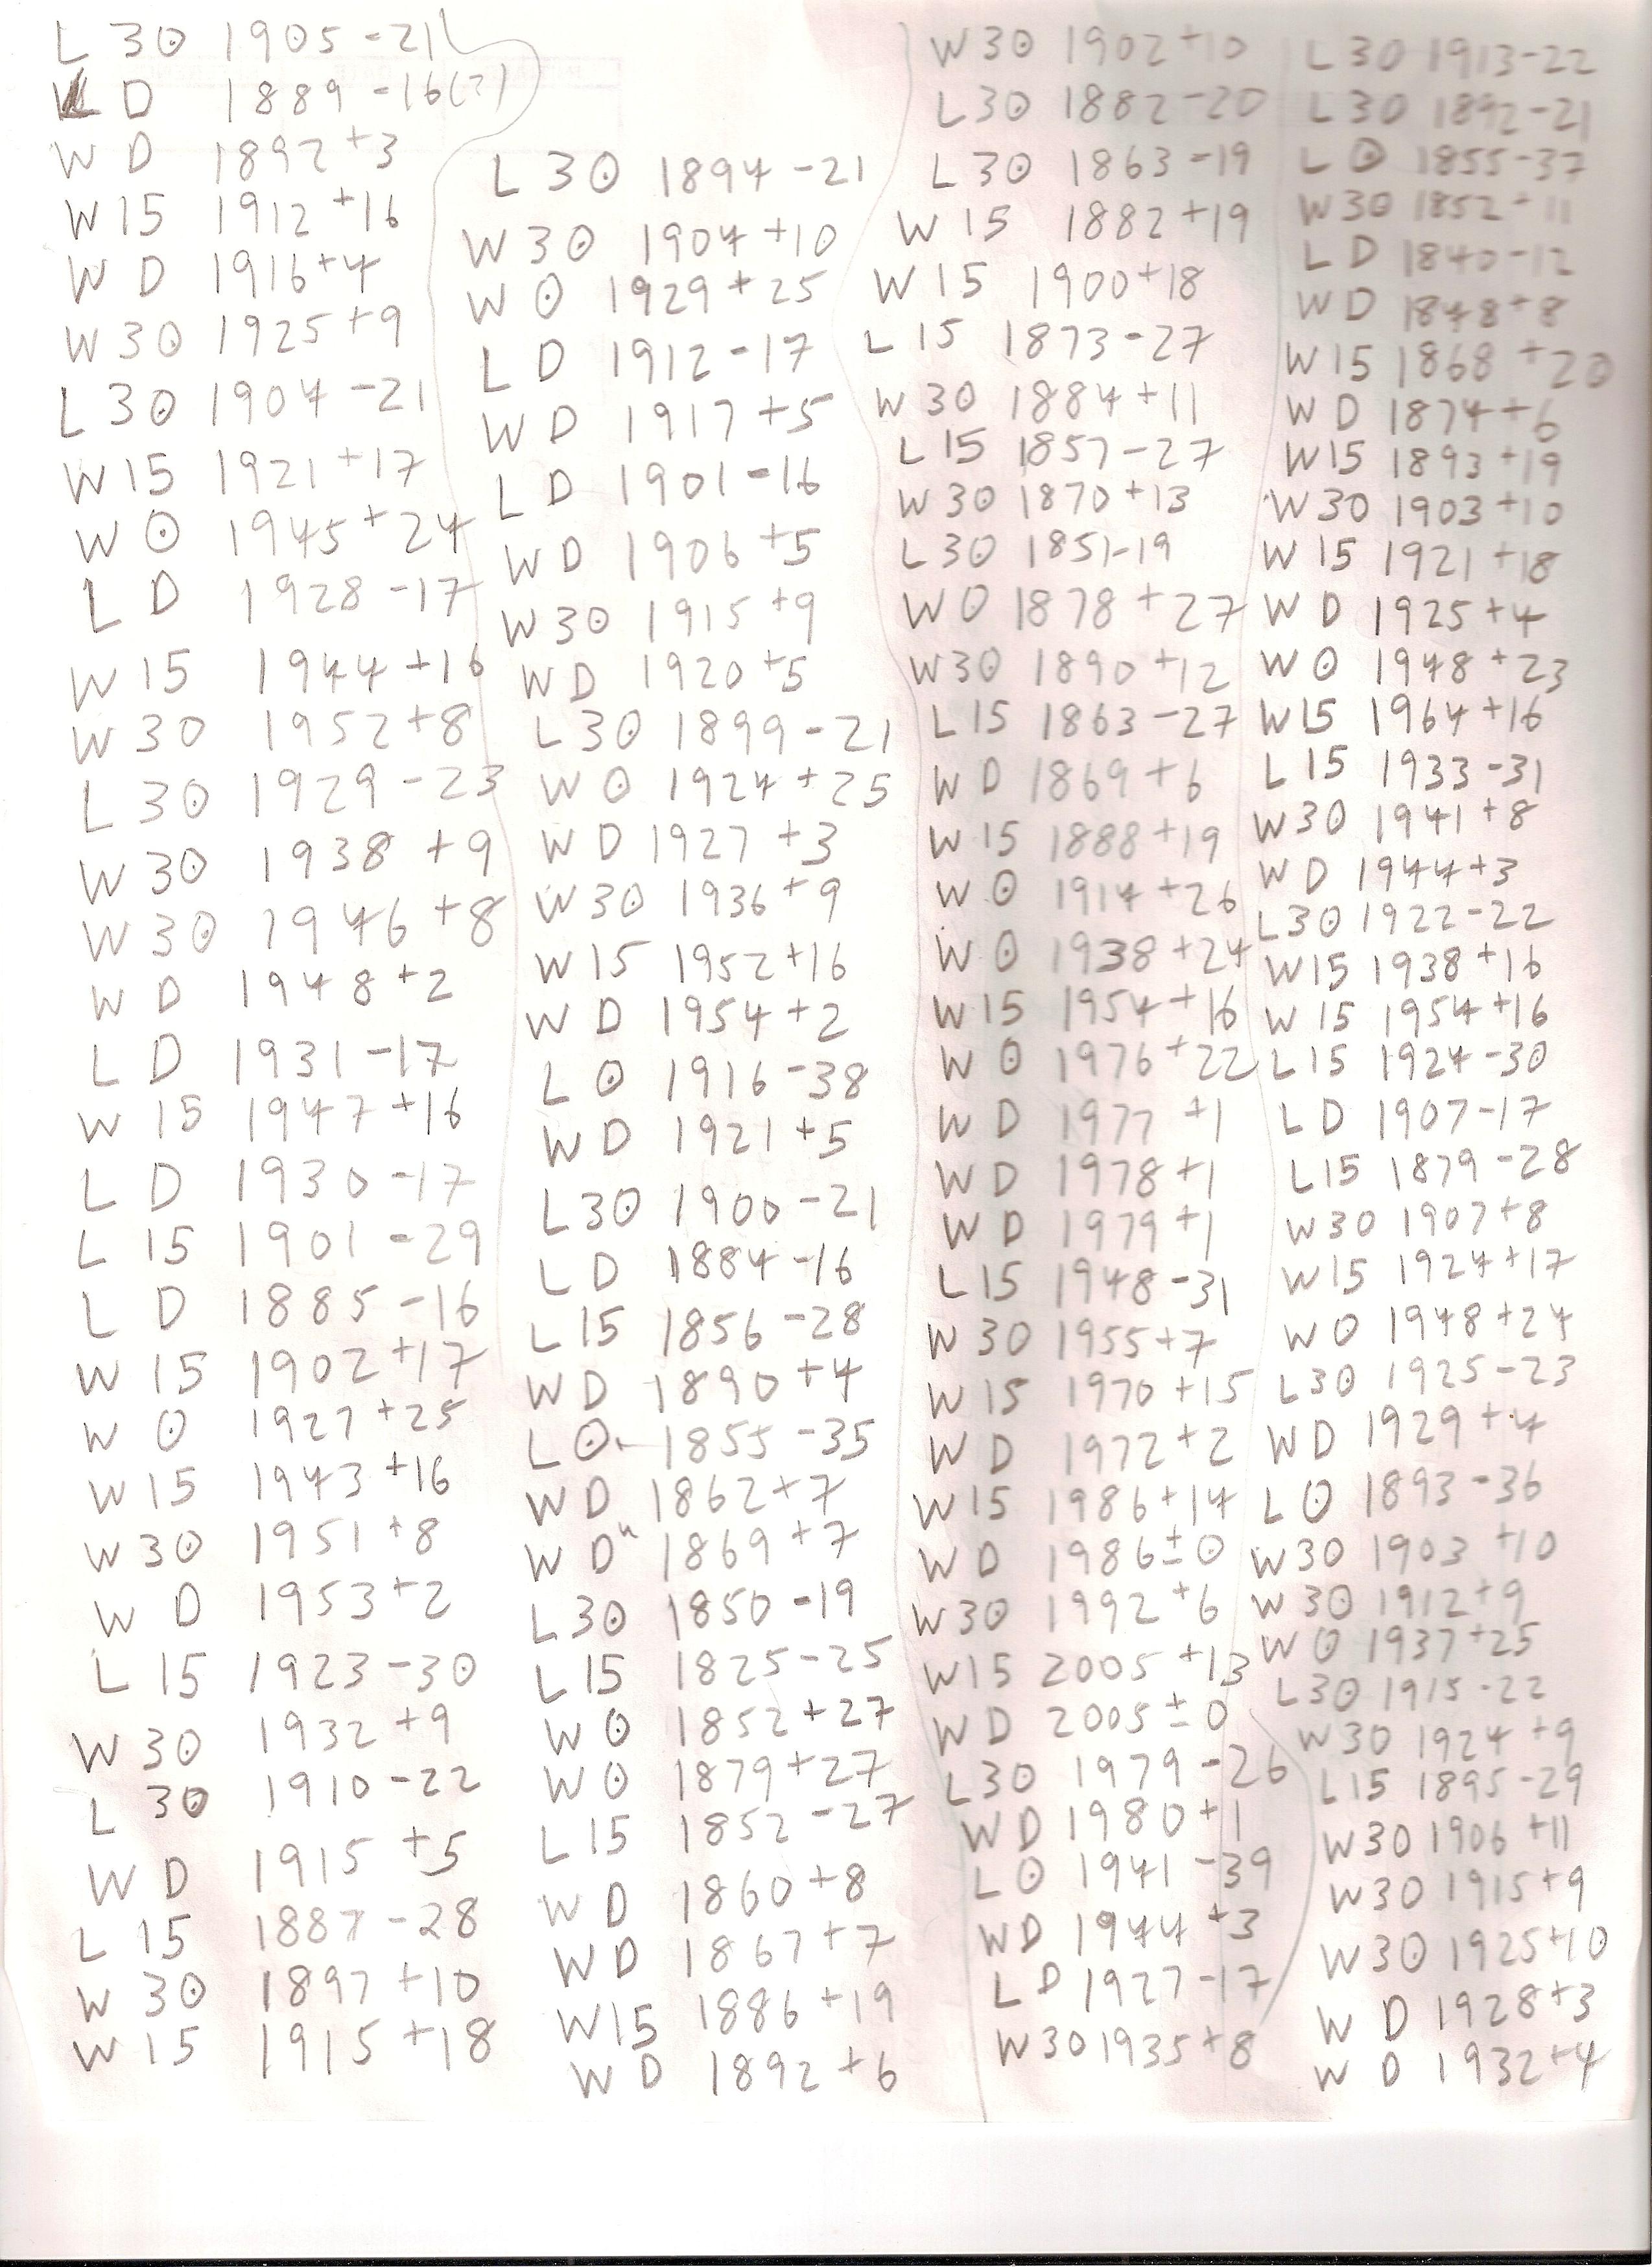 L 30 1905 -21
L D 1889 -16(?)
W D 1892 +3
W 15 1912 +16
W D 1916 +4
W 30 1925 +9
L 30 1904 -21
W 15 1921 +17
W 0 1945 +24
L D 1928 -17
W 15 1944 +16
W 30 1952 +8
L 30 1929 -23
W 30 1938 +9
W 30 1946 +8
W D 1948 +2
L D 1931 -17
W 15 1947 +16
L D 1930 -17
L 15 1901 -29
L D 1885 -16
W 15 1902 +17
W 0 1927 +25
W 15 1943 +16
W 30 1951 +8
W D 1953 +2
L 15 1923 -30
W 30 1932 +9
L 30 1910 -22
W D 1915 +5
L 15 1887 -28
W 30 1897 +10
W 15 1915 +18
L 30 1894 -21
W 30 1904 +10
W 0 1929 +25
L D 1912 -17
W D 1917 +5
L D 1901 -16
W D 1906 +5
W 30 1915 +9
W D 1920 +5
L 30 1899 -21
W 0 1924 +25
W D 1927 +3
W 30 1936 +9
W 15 1952 +16
W D 1954 +2
L 0 1916 -38
W D 1921 +5
L 30 1900 -21
L D 1884 -16
L 15 1856 -28
W D 1890 +4
L 0 1855 -35
W D 1862 +7
W D 1869 +7
L 30 1850 -19
L 15 1825 -25
W 0 1852 +27
W 0 1879 +27
L 15 1852 -27
W D 1860 +8
W D 1867 +7
W 15 1886 +19
W D 1892 +6
W 30 1902 +10
L 30 1882 -20
L 30 1863 -19
W 15 1882 +19
W 15 1900 +18
L 15 1873 -27
W 30 1884 +11
L 15 1857 -27
W 30 1870 +13
L 30 1851 -19
W 0 1878 +27
W 30 1890 +12
L 15 1863 -27
W D 1869 +6
W 15 1888 +19
W 0 1914 +26
W 0 1938 +24
W 15 1954 +16
W 0 1976 +22
W D 1977 +1
W D 1978 +1
W D 1979 +1
L 15 1948 -31
W 30 1955 +7
W 15 1970 +15
W D 1972 +2
W 15 1986 +14
W D 1986 ±0
W 30 1992 +6
W 15 2005 +13
W D 2005 ±0
L 30 1979 -26
W D 1980 +1
L 0 1941 -39
W D 1944 +3
L D 1927 -17
W 30 1935 +8
L 30 1913 -22
L 30 1892 -21
L 0 1855 -37
W 30 1852 +11
L D 1840 -12
W D 1848 +8
W 15 1868 +20
W D 1874 +6
W 15 1893 +19
W 30 1903 +10
W 15 1921 +18
W D 1925 +4
W 0 1948 +23
W 15 1964 +16
L 15 1933 -31
W 30 1941 +8
W D 1944 +3
L 30 1922 -22
W 15 1938 +16
W 15 1954 +16
L 15 1924 -30
L D 1907 -17
L 15 1879 -28
W 30 1907 +8
W 15 1924 +17
W 0 1948 +24
L 30 1925 -23
W D 1929 +4
L 0 1893 -36
W 30 1903 +10
W 30 1912 +9
W 0 1937 +25
L 30 1915 -22
W 30 1924 +9
L 15 1895 -29
W 30 1906 +11
W 30 1915 +9
W 30 1925 +10
W D 1928 +3
W D 1932 +4